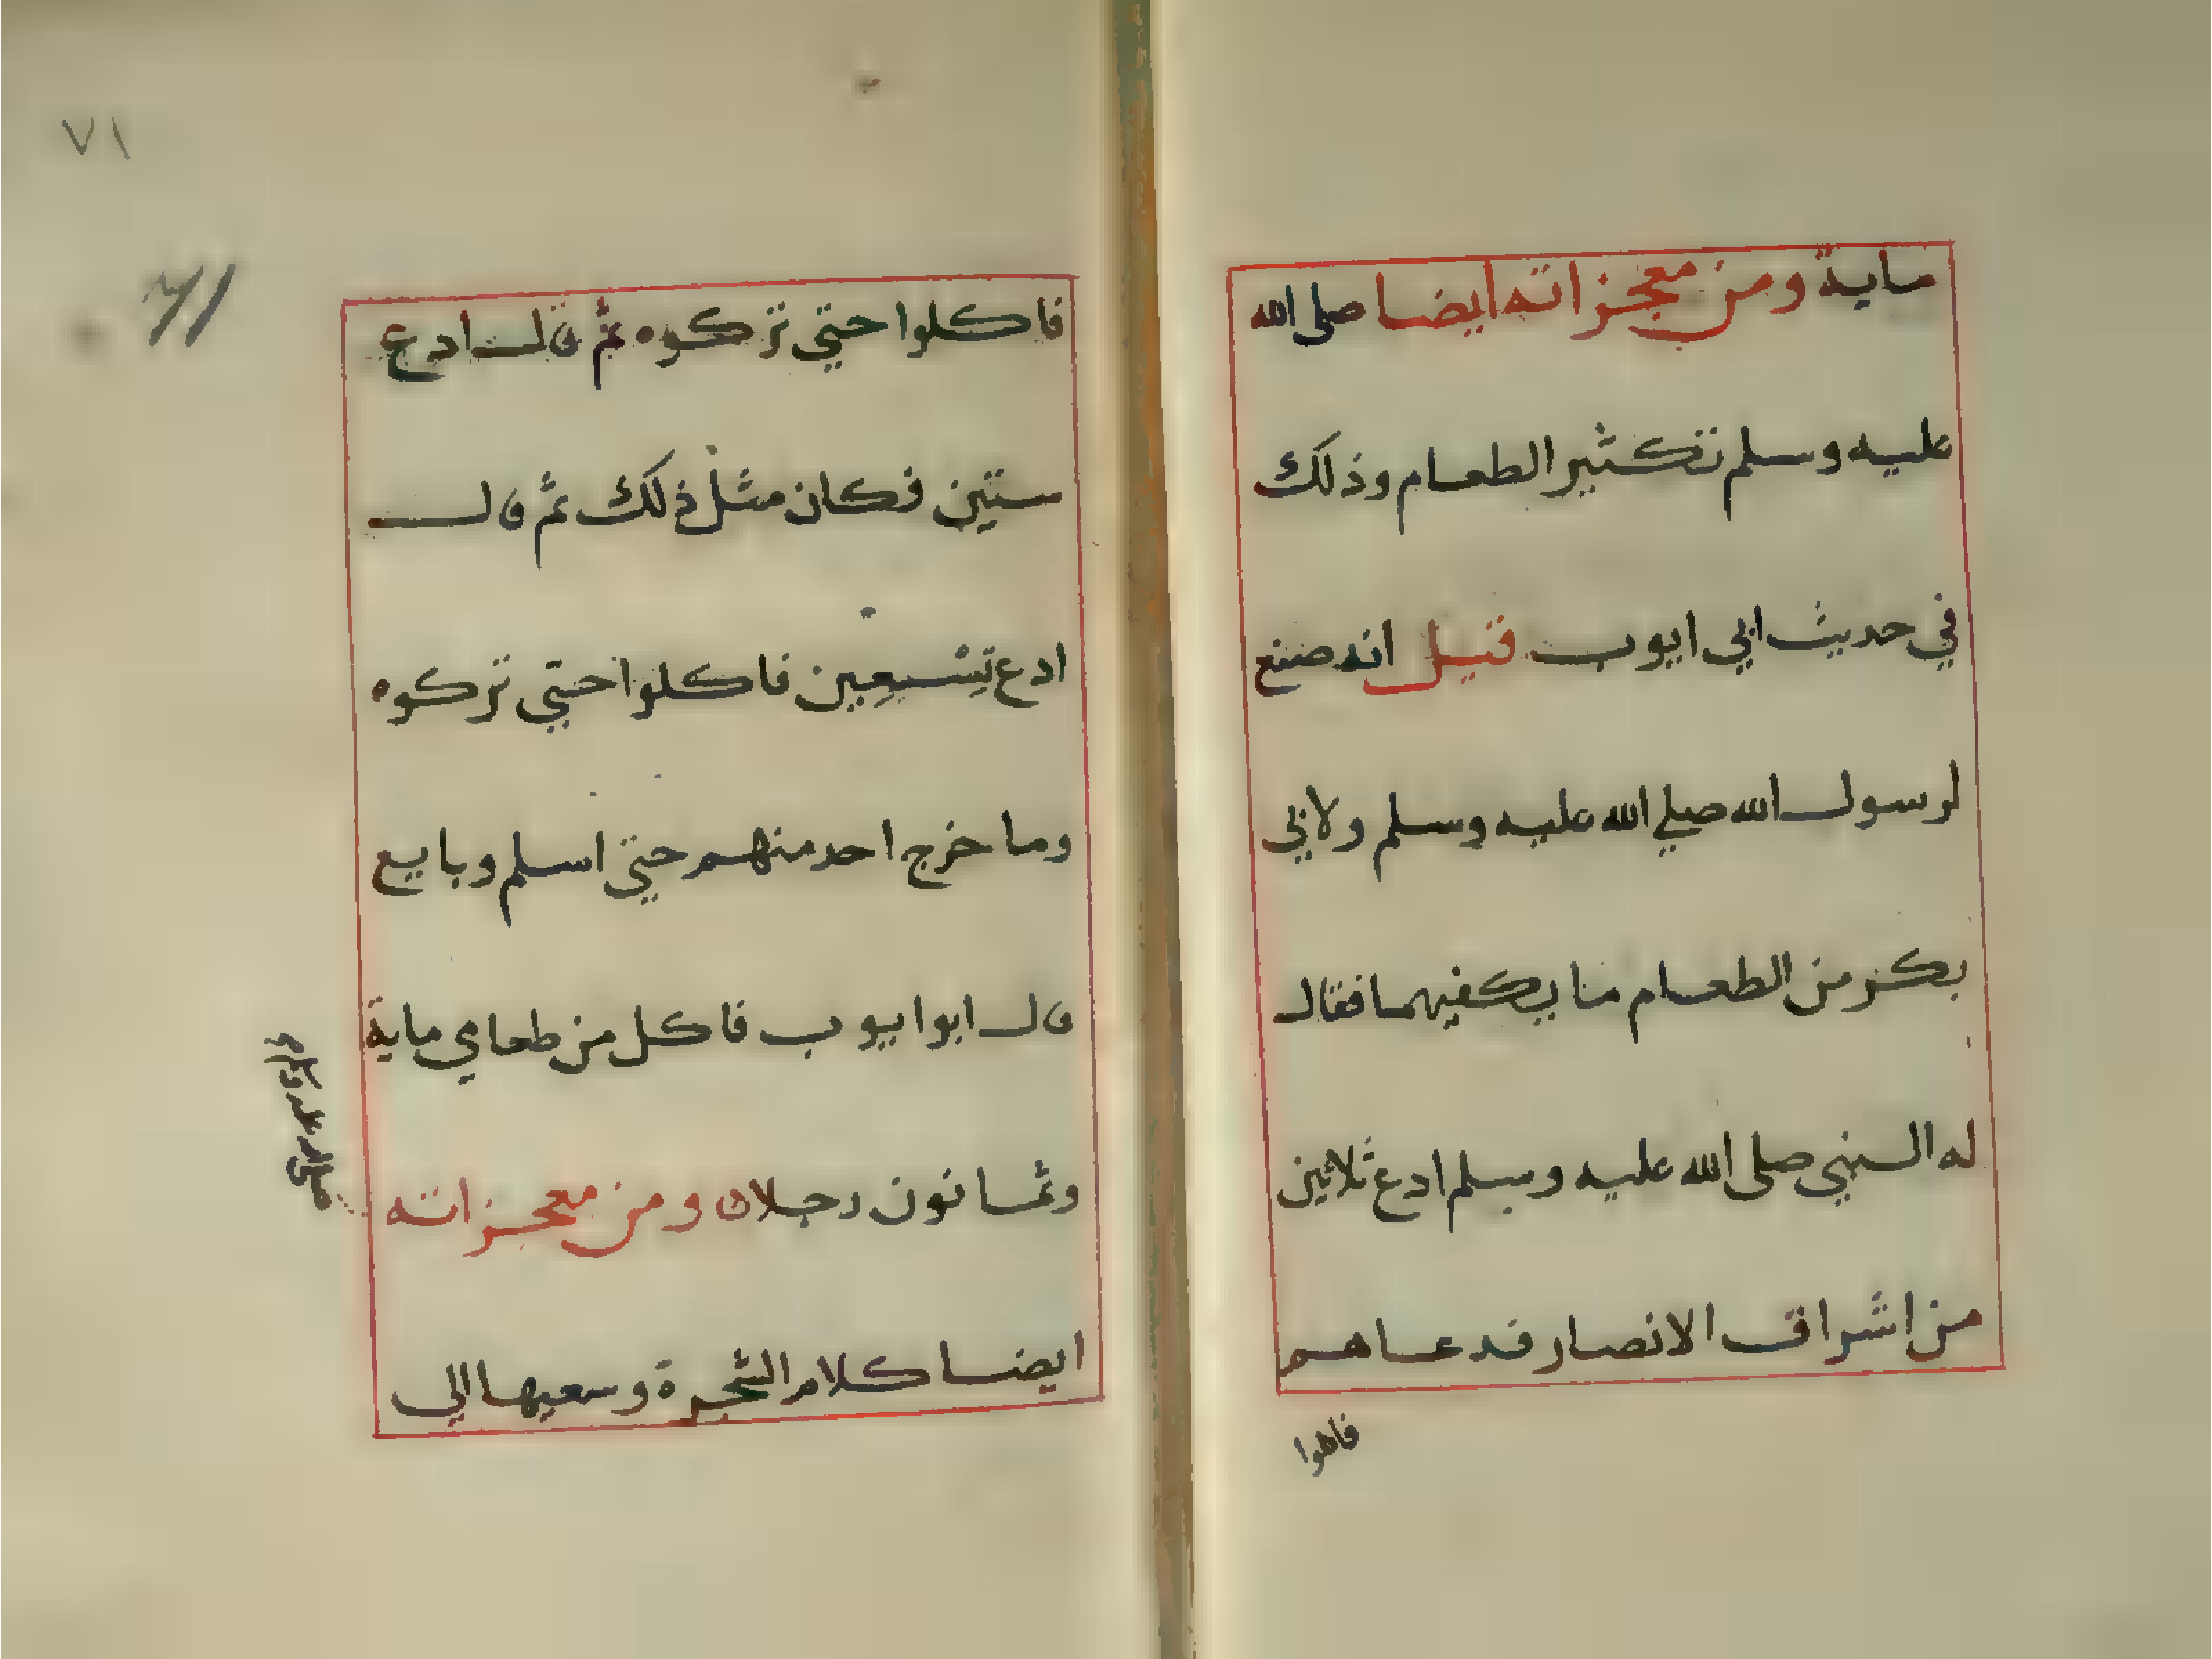 ماية ومن معجزاته ايضا صلى الله
عليه وسلم تكثير الطعام وذلك
في حديث ابي ايوب قيل انه صنع
لرسول الله صلي الله عليه وسلم ولابي
بكر من الطعام ما يكفيهما فقال
له النبي صلى الله عليه وسلم ادع ثلاثين
من اشراف الانصار فدعاهم
فاكلوا
٧١
فاكلوا حتى تركوه ثم قال ادع
ستين فكان مثل ذلك ثم قال
ادع تسعين فاكلوا حتي تركوه
وما خرج احد منهم حتى اسلم وبايع
قال ابو ايوب فاكل من طعامي ماية
وثمانون رجلا ومن معجزاته
ايضا كلام الشجرة وسعيها الي